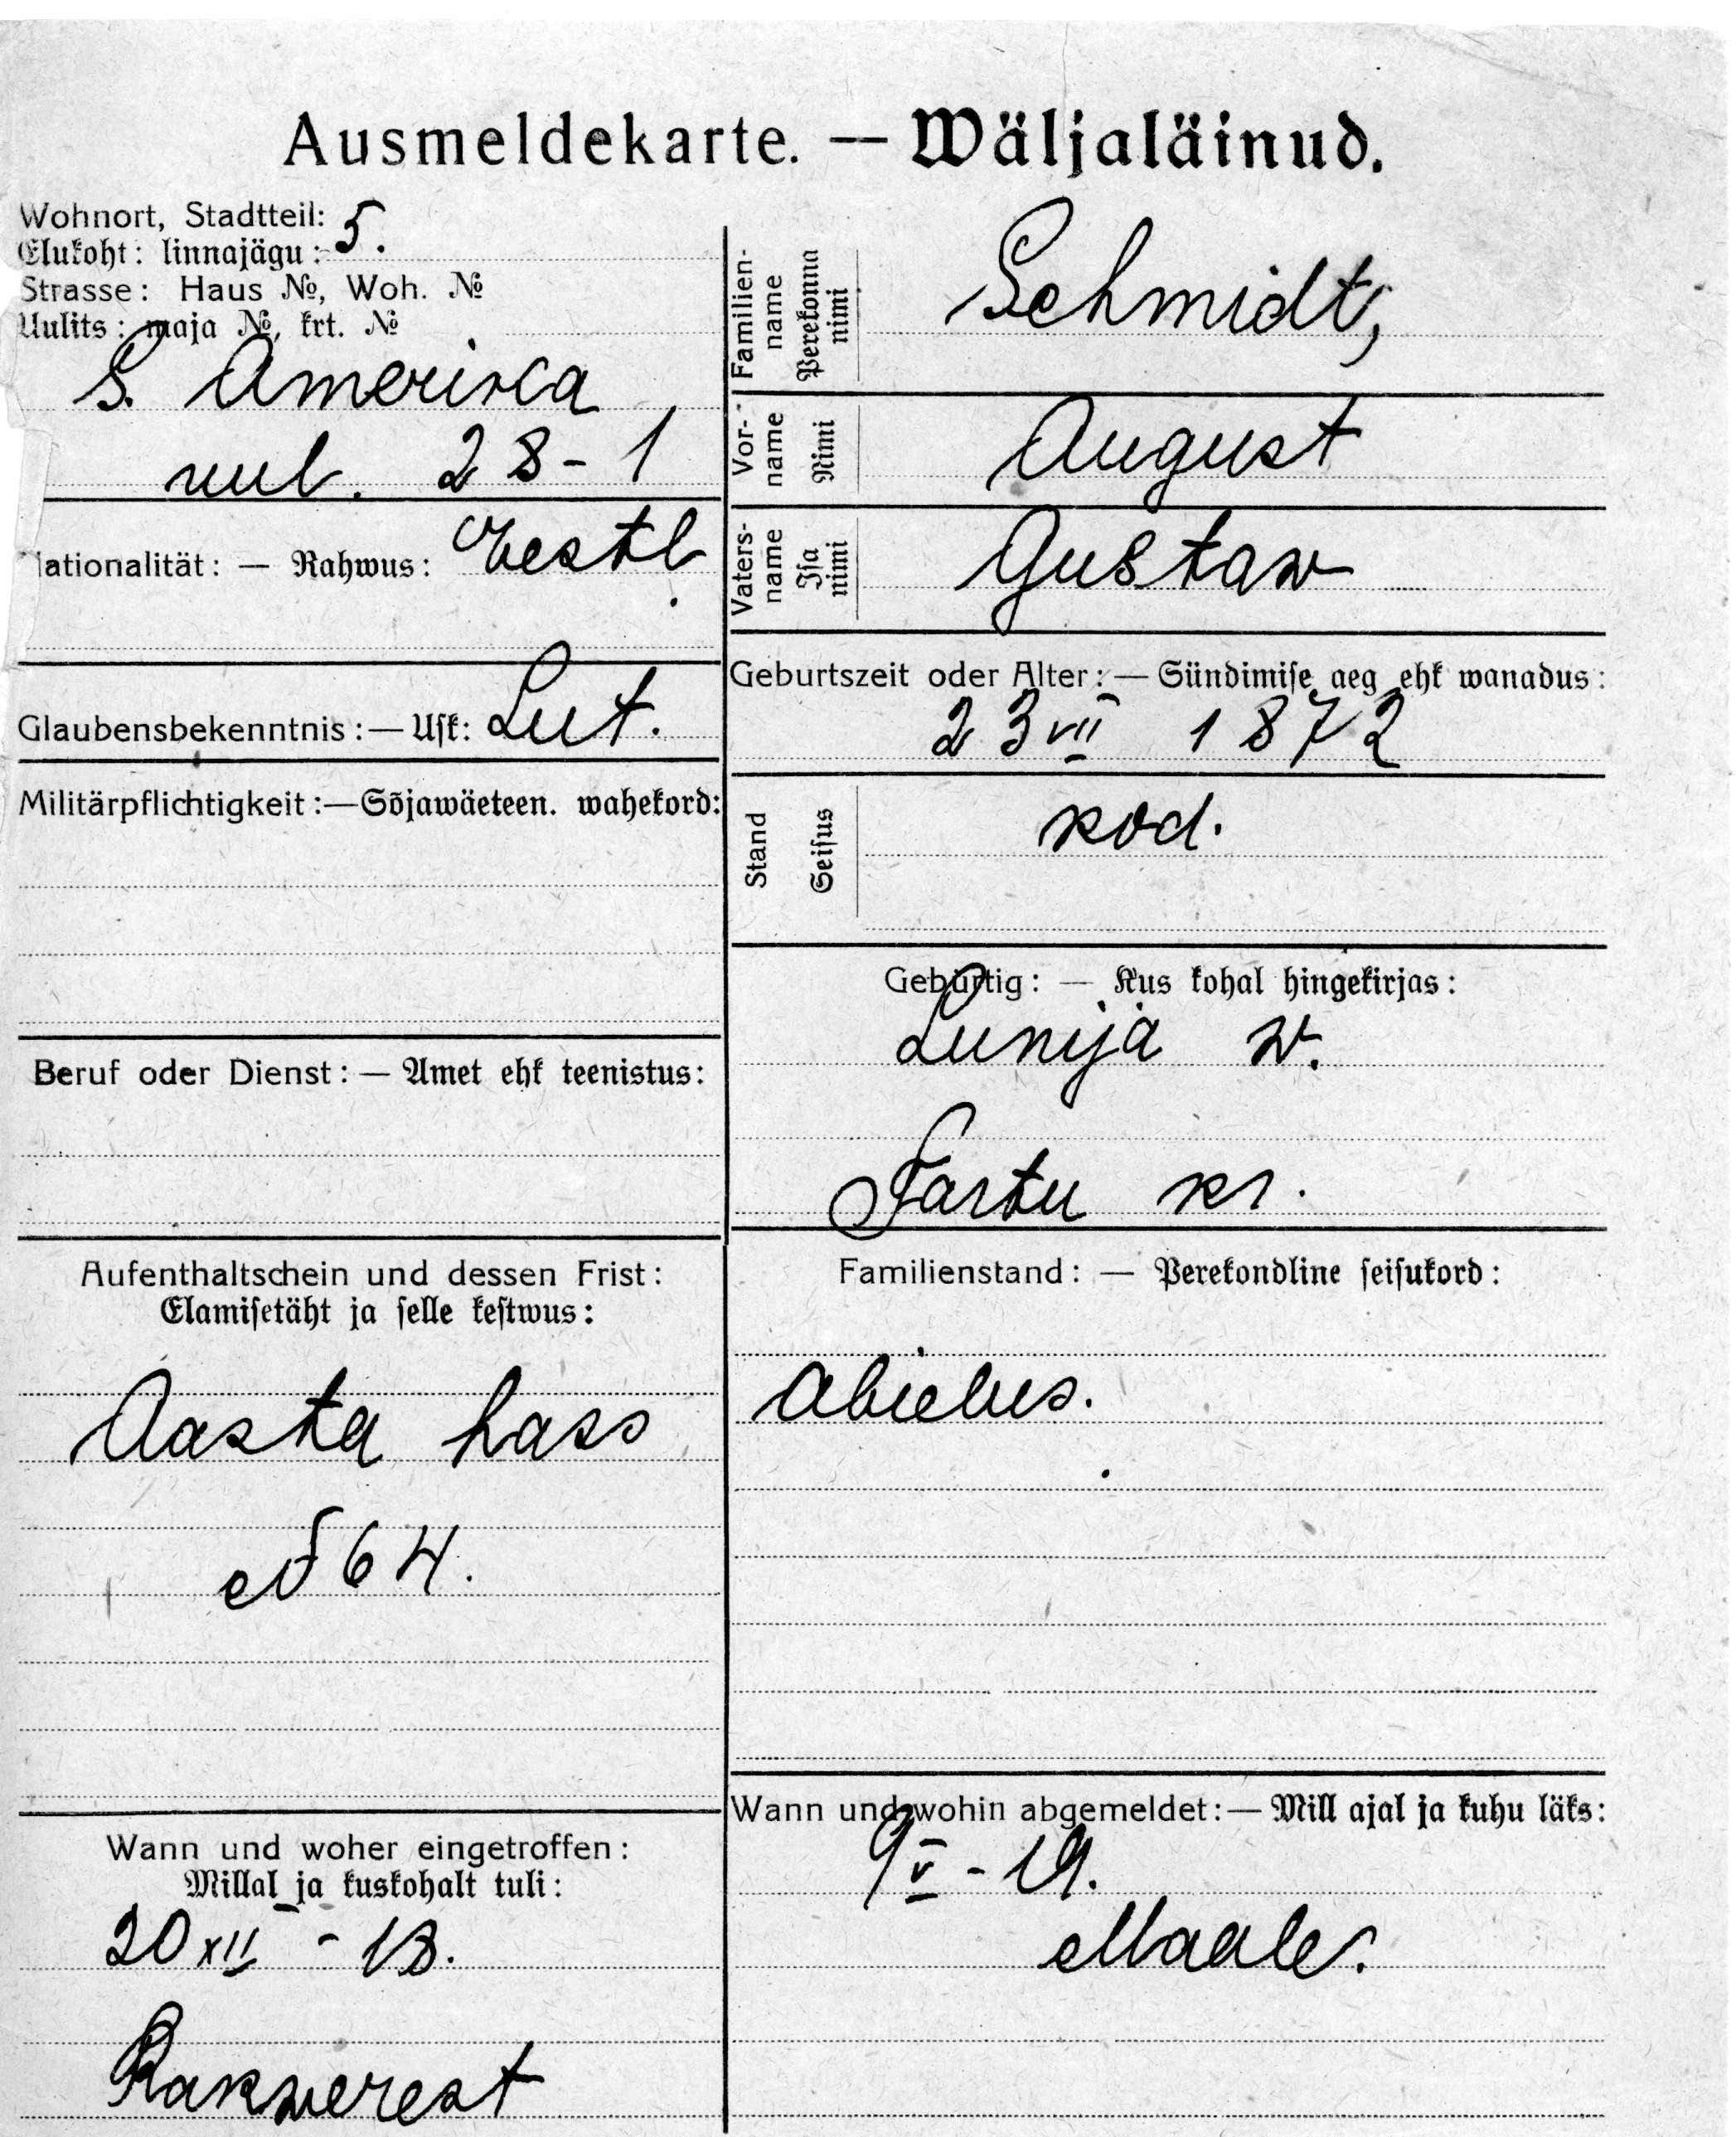 Ausmeldekarte. — Wäljaläinud.
Wohnort, Stadtteil:
Elukoht: linnajägu: 5.
Strasse: Haus №, Woh. №
Uulits: maja №, krt. №
S. Amerika
uul. 28-1
Nationalität: — Rahwus: Eestl.
Glaubensbekenntnis: — Usk: Lut.
Militärpflichtigkeit: — Sõjawäeteen. wahekord:
Beruf oder Dienst: — Amet ehk teenistus:
Aufenthaltschein und dessen Frist:
Elamisetäht ja selle kestwus:
Aasta pass
№ 64.
Wann und woher eingetroffen:
Millal ja kuskohalt tuli:
20 XII - 18.
Rakwerest
Familien-
name
Perekonna
nimi
Schmidt,
Vor-
name
Nimi
August
Vaters-
name
Isa
nimi
Gustaw
Geburtszeit oder Alter: — Sündimise aeg ehk wanadus:
23 VII 1872
Stand
Seisus
kod.
Gebürtig: — Kus kohal hingekirjas:
Lunija w.
Tartu kr.
Familienstand: — Perekondline seisukord:
abielus.
Wann und wohin abgemeldet: — Mill ajal ja kuhu läks:
9 V - 19.
Maale.